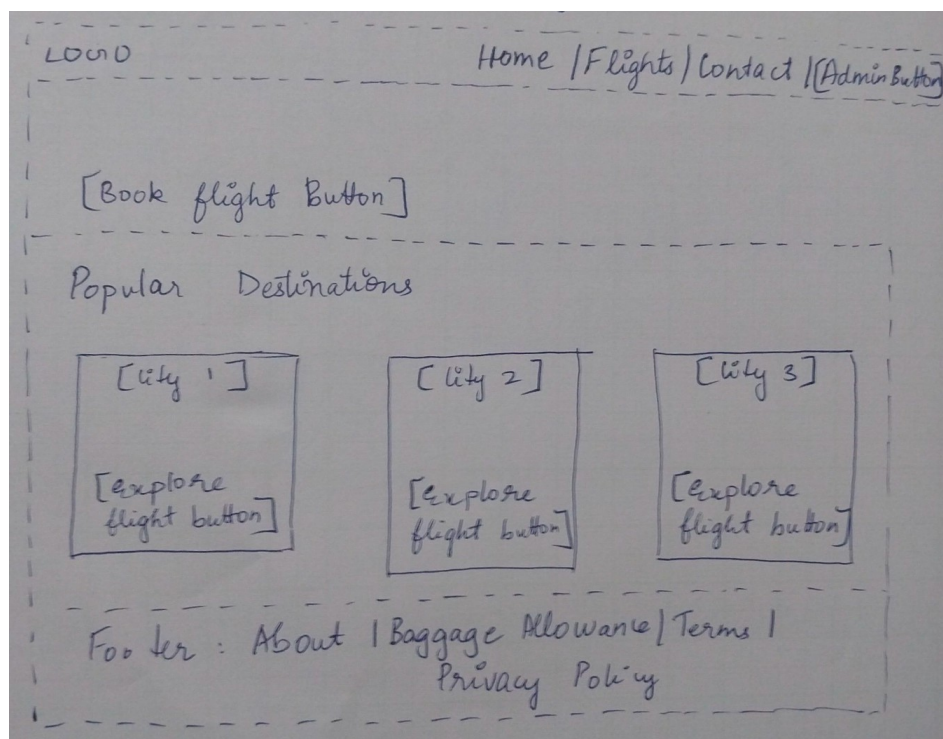 LOGO Home | Flights | Contact | [Admin Button]
[Book flight Button]
Popular Destinations
[City 1] [City 2] [City 3]
[explore [explore [explore
flight button] flight button] flight button]
Footer : About | Baggage Allowance | Terms |
Privacy Policy